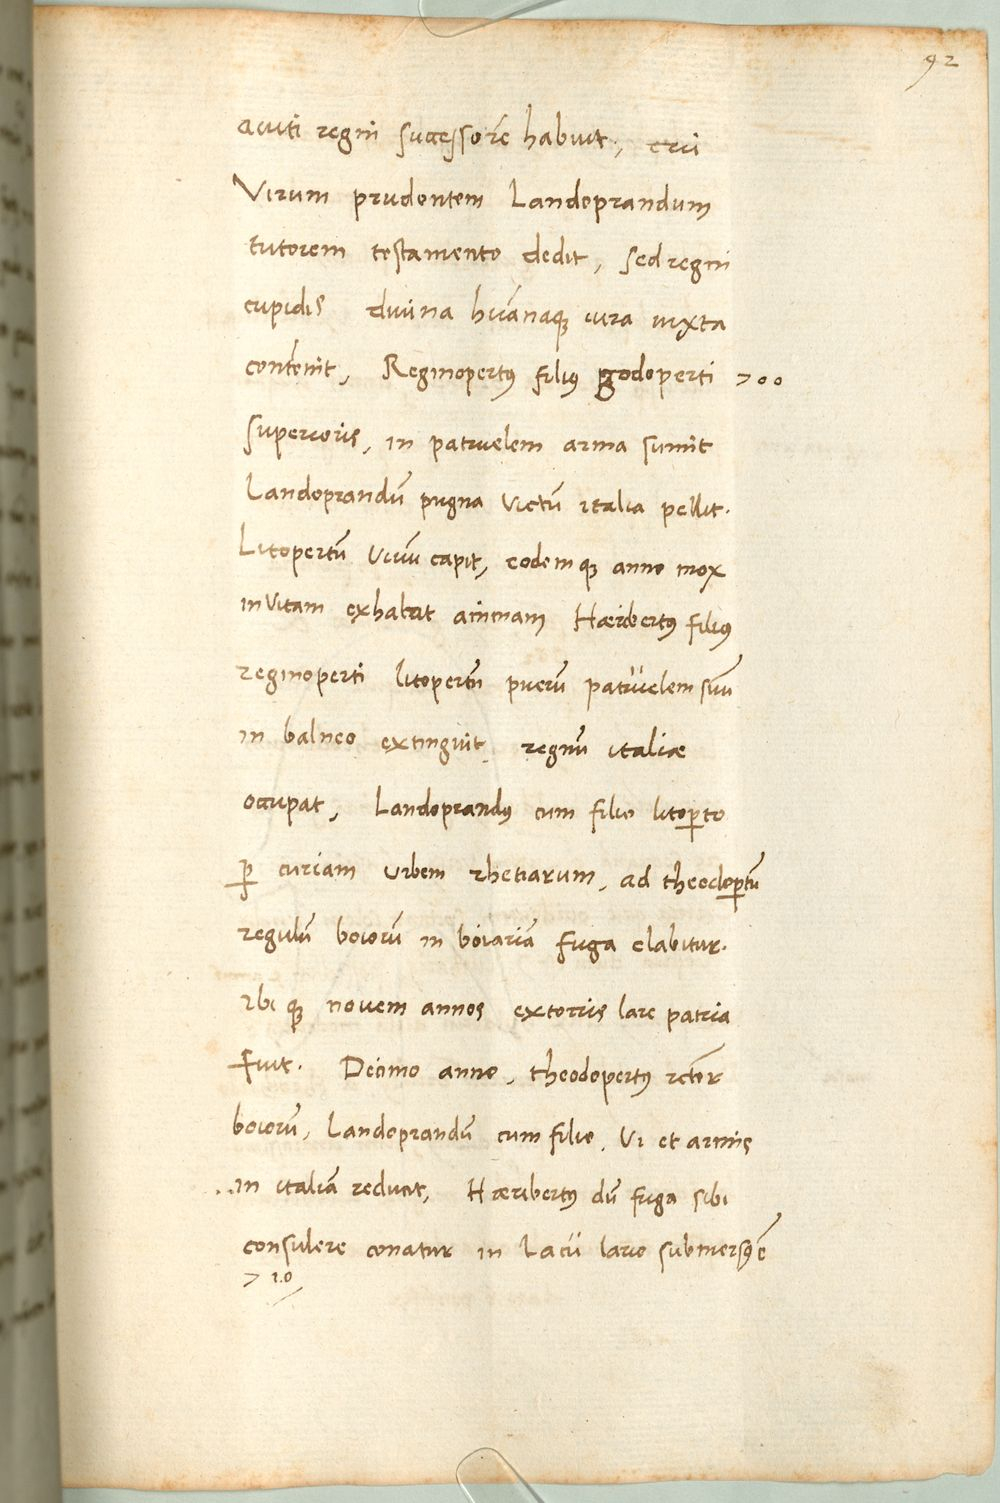 92
aciuti regni successorē habuit, cui
Virum prudentem Landoprandum
tutorem testamento dedit, sed regni
cupidis divina hūanaq; cura iuxta
contēnit, Reginopertꝰ filiꝰ godoperti 700
superioris, in patruelem arma sumit
Landoprandū pugna victū italia pellit.
Litopertū vivū capit, eodemq; anno mox
in vitam exhalat Hæribertꝰ filiꝰ
reginoperti litopertū puerū patruelem suū
in balneo extinguit regnū italiæ
occupat, Landoprandꝰ cum filio litoꝑto
ꝑ curiam urbem rhetiarum, ad theodoꝑtū
regulū boiorū in boiariā fuga elabitur.
ibiq; novem annos extorris lare patria
fuit. Decimo anno, theodopertꝰ rector
boiorū, Landoprandū cum filio, vi et armis
in italiā reducit, Hæribertꝰ dū fuga sibi
consulere conatur in Lacū lario submersꝰ ē
710